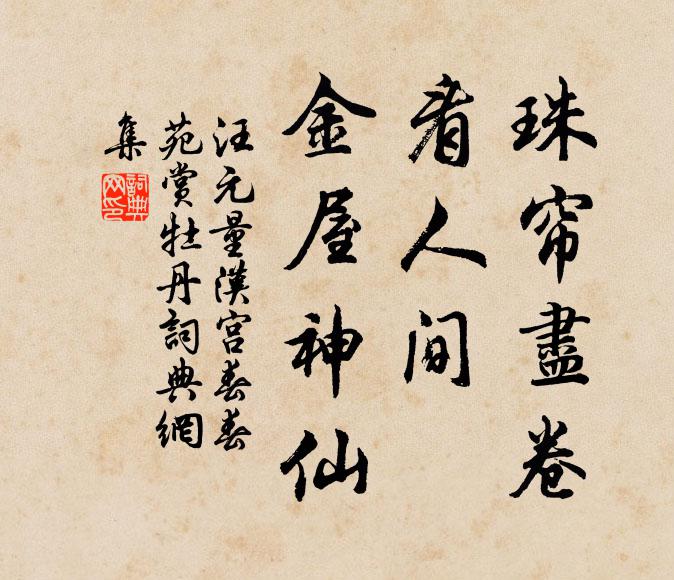 珠帘盡卷
看人間
金屋神仙
汪元量漢宮春春
苑賞牡丹詞典網
集
詞典
网印